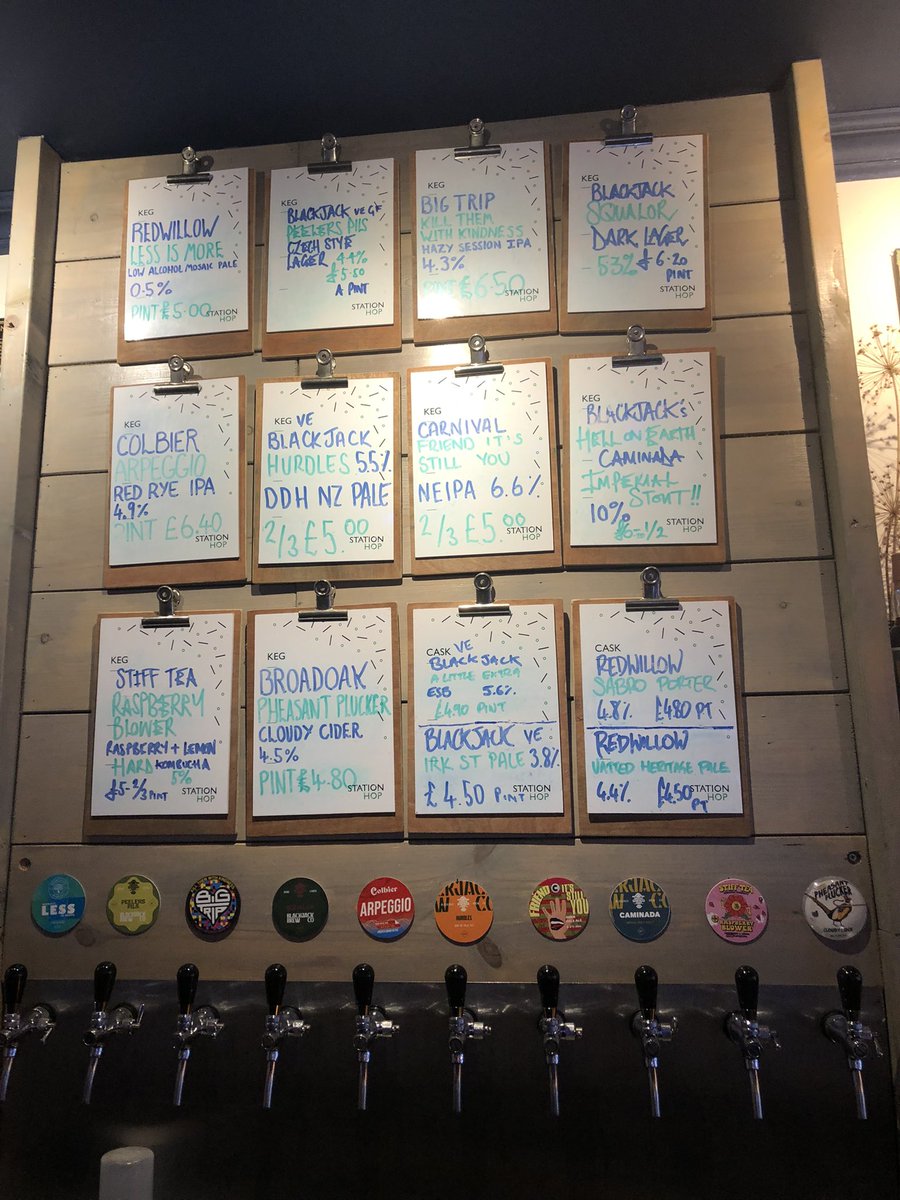 KEG
REDWILLOW
LESS IS MORE
LOW ALCOHOL MOSAIC PALE
0.5%
PINT £5.00
STATION
HOP
KEG
BLACKJACK VE GF
PEELERS PILS
CZECH STYLE
LAGER 4.4%
£5.50
A PINT
STATION
HOP
KEG
BIG TRIP
KILL THEM
WITH KINDNESS
HAZY SESSION IPA
4.3%
PINT £6.50
STATION
HOP
KEG
BLACKJACK
SQUALOR
DARK LAGER
5.3% £6.20
PINT
STATION
HOP
KEG
COLBIER
ARPEGGIO
RED RYE IPA
4.9%
PINT £6.40
STATION
HOP
KEG VE
BLACKJACK
HURDLES 5.5%
DDH NZ PALE
2/3 £5.00
STATION
HOP
KEG
CARNIVAL
FRIEND IT'S
STILL YOU
NEIPA 6.6%
2/3 £5.00
STATION
HOP
KEG
BLACKJACK'S
HELL ON EARTH
CAMINADA
IMPERIAL
STOUT!!
10%
1/2
STATION
HOP
KEG
STIFF TEA
RASPBERRY
BLOWER
RASPBERRY + LEMON
HARD KOMBUCHA
5%
£5-2/3 PINT
STATION
HOP
KEG
BROADOAK
PHEASANT PLUCKER
CLOUDY CIDER
4.5%
PINT £4.80
STATION
HOP
CASK VE
BLACKJACK
A LITTLE EXTRA
ESB 5.6%
£4.90 PINT
BLACKJACK VE
IRK ST PALE 3.8%
£4.50 PINT
STATION
HOP
CASK
REDWILLOW
SABRO PORTER
4.8% £4.80 PT
REDWILLOW
VATTED HERITAGE PALE
4.4% £4.50
PT
STATION
HOP
LESS
PEELERS
PILS
BLACKJACK
BIG
TRIP
BLACKJACK
BREW CO
Colbier
ARPEGGIO
HURDLES
FRIEND IT'S
YOU
CAMINADA
STIFF TEA
RASPBERRY
BLOWER
PHEASANT
PLUCKER
CLOUDY CIDER